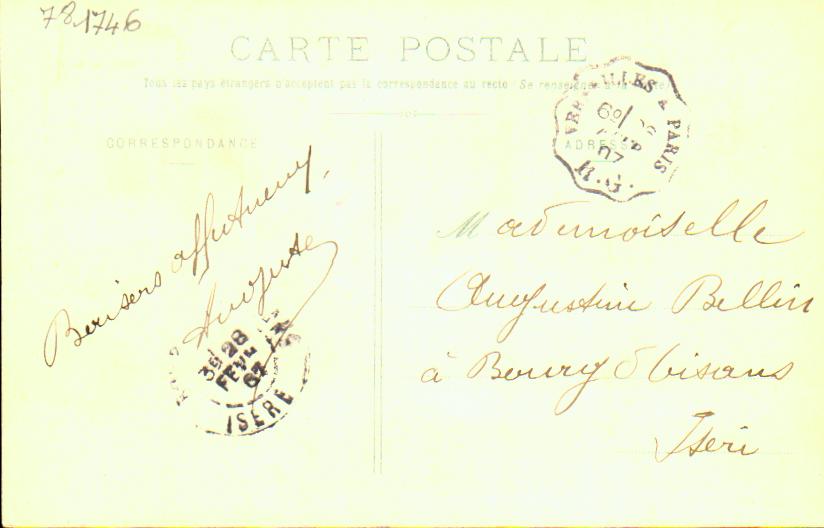 78 1746
CARTE POSTALE
Tous les pays étrangers n'acceptent pas la correspondance au recto (Se renseigner à la
CORRESPONDANCE
ADRESSE
VERSAILLES A PARIS
6º/
07
R.G.
Baisers affectueux
Auguste
3E/ 28
FEVR
07
ISERE
Mademoiselle
Augustine Bellin
à Bourg d'Oisans
Isère